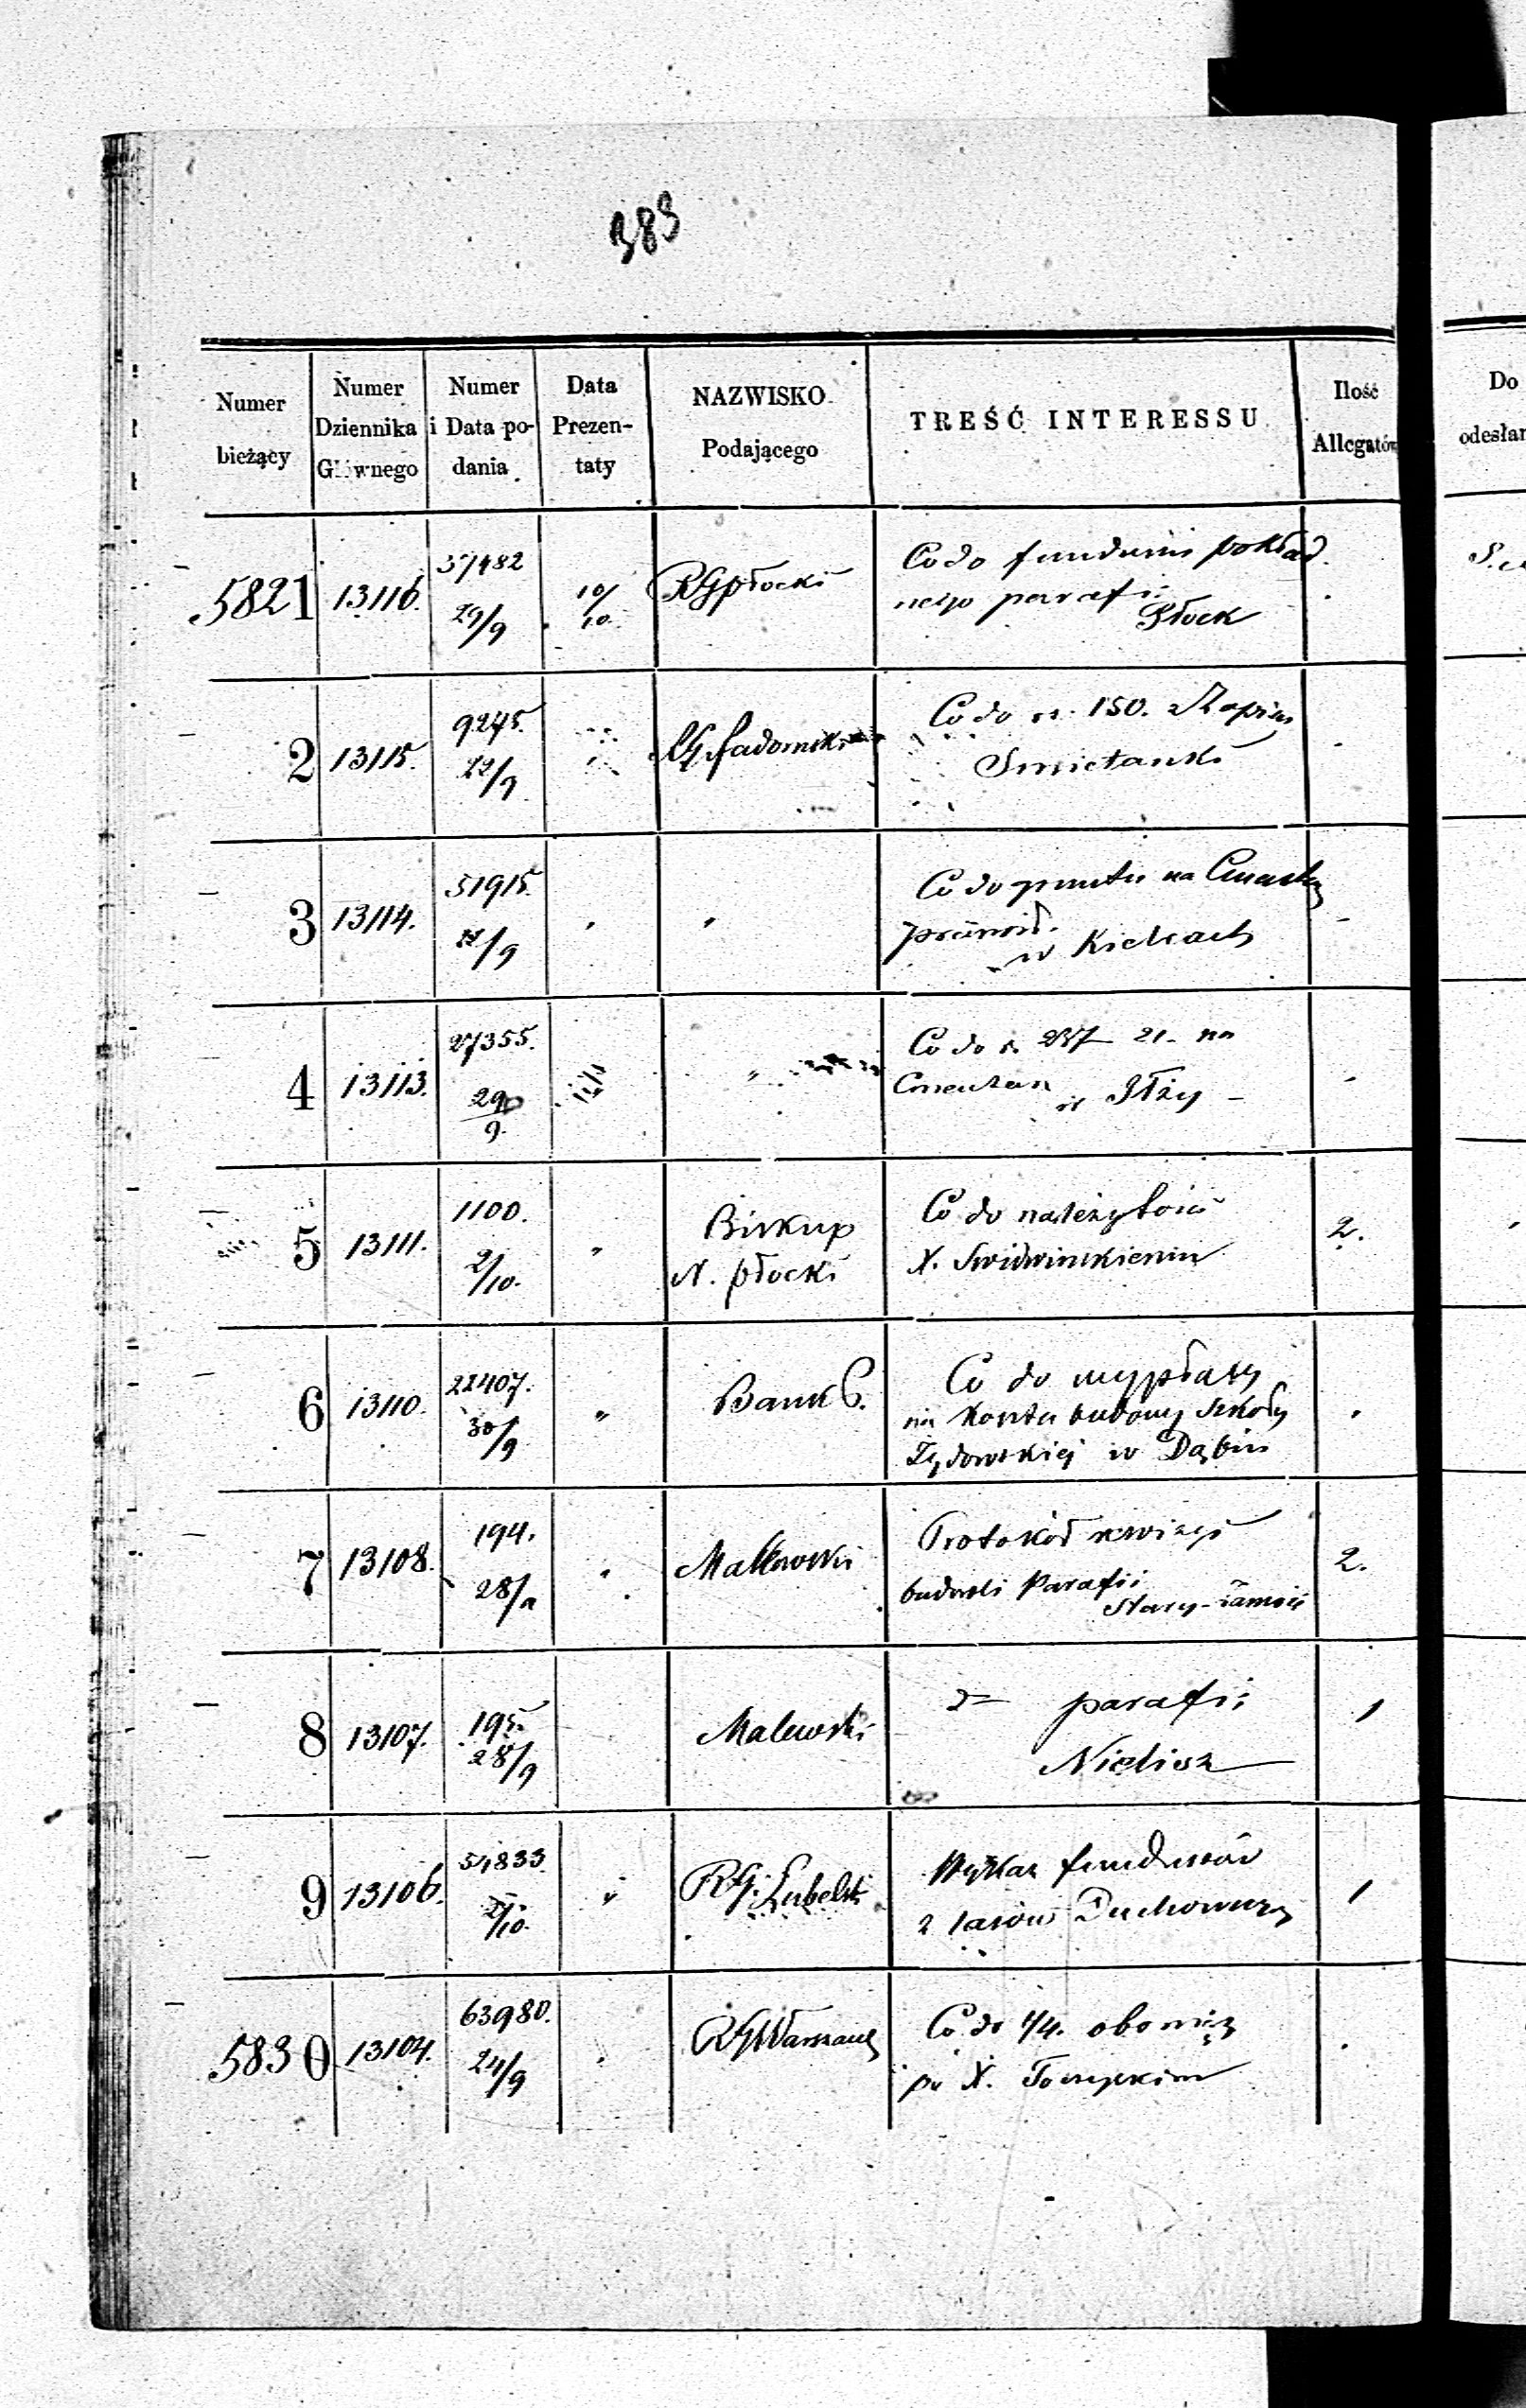 383
Numer bieżący
Numer Dziennika Głównego
Numer i Data podania
Data Prezentaty
NAZWISKO Podającego
TREŚĆ INTERESSU
Ilość Allegatów
Do odesłan
5821 13116. 57482 29/9 10/10 RG płocki Co do funduszu pokład.
nego parafii
Płock
2 13115. 9275. 22/9 RG Radomski Co do rs. 150. Zapisu
Smietanki
3 13114. 51915. /9 " " Co do gruntu na Cmentarz
w Kielcach
4 13113. 27355. 29/9 " Co do rs. 21. na
Cmentarz w Iłży
5 13111. 1100. 2/10. " Biskup Co do należytości 2.
N. płocki X. Swidwinskiemu
6 13110. 22407. 30/9 " Bank P. Co do wypłaty
na konto budowy szkoły
Żydowskiej w Dąbiu
7 13108. 194. 28/9 " Malewski Protokół rewizyi 2.
budowli Parafii
Stary-zamość
8 13107. 195. 28/9 Malewski parafii 1
Nielisz
9 13106. 54833. 2/10. " RG. Lubelski Wykaz funduszów 1
z lasów Duchownych
5830 13104. 63980. 24/9 RG Warszaw Co do 1/4.
po X.